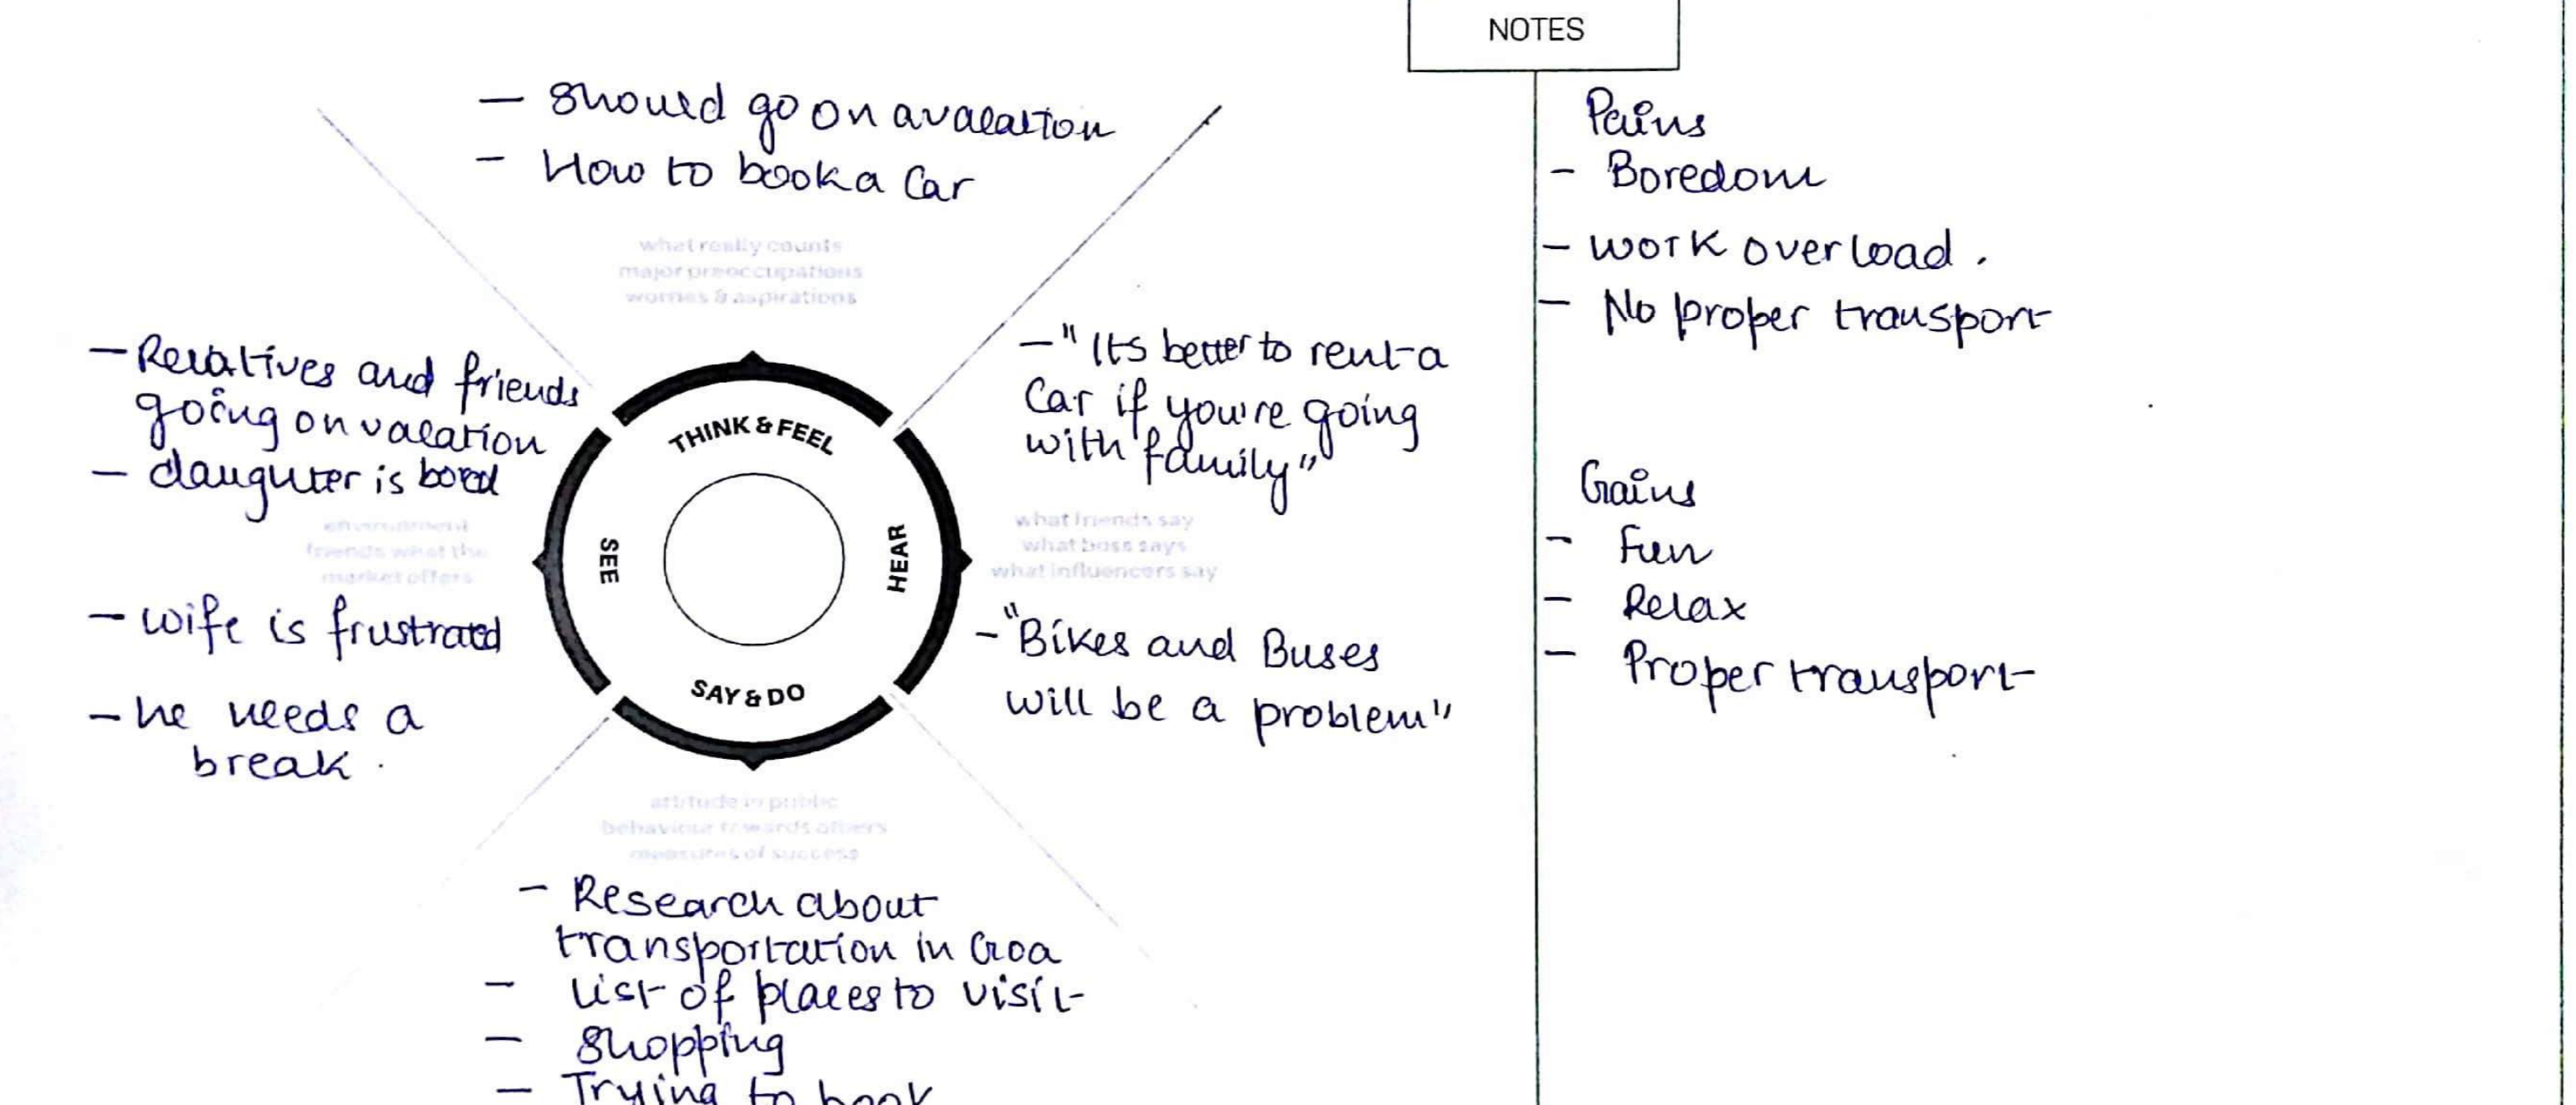 NOTES
- Should go on a vacation
- How to book a Car
what really counts
major preoccupations
worries & aspirations
- Relatives and friends
going on vacation
- daughter is bored
environment
friends what the
market offers
- wife is frustrated
- he needs a
break.
THINK & FEEL
SEE
HEAR
SAY & DO
- "Its better to rent a
Car if you're going
with family"
what friends say
what boss says
what influencers say
- "Bikes and Buses
will be a problem"
attitude in public
behaviour towards others
measures of success
- Research about
transportation in Goa
- List of places to visit
- Shopping
- Trying to book
Pains
- Boredom
- work overload.
- No proper transport
Gains
- Fun
- Relax
- Proper transport